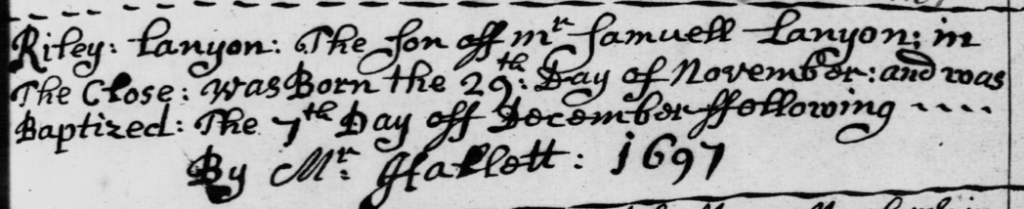 Riley: Lanyon: The son off mr Samuell Lanyon: in
The Close: was Born the 29th: Day of November: and was
Baptized: The 7th Day off December ffollowing
By Mr: Hallett: 1697